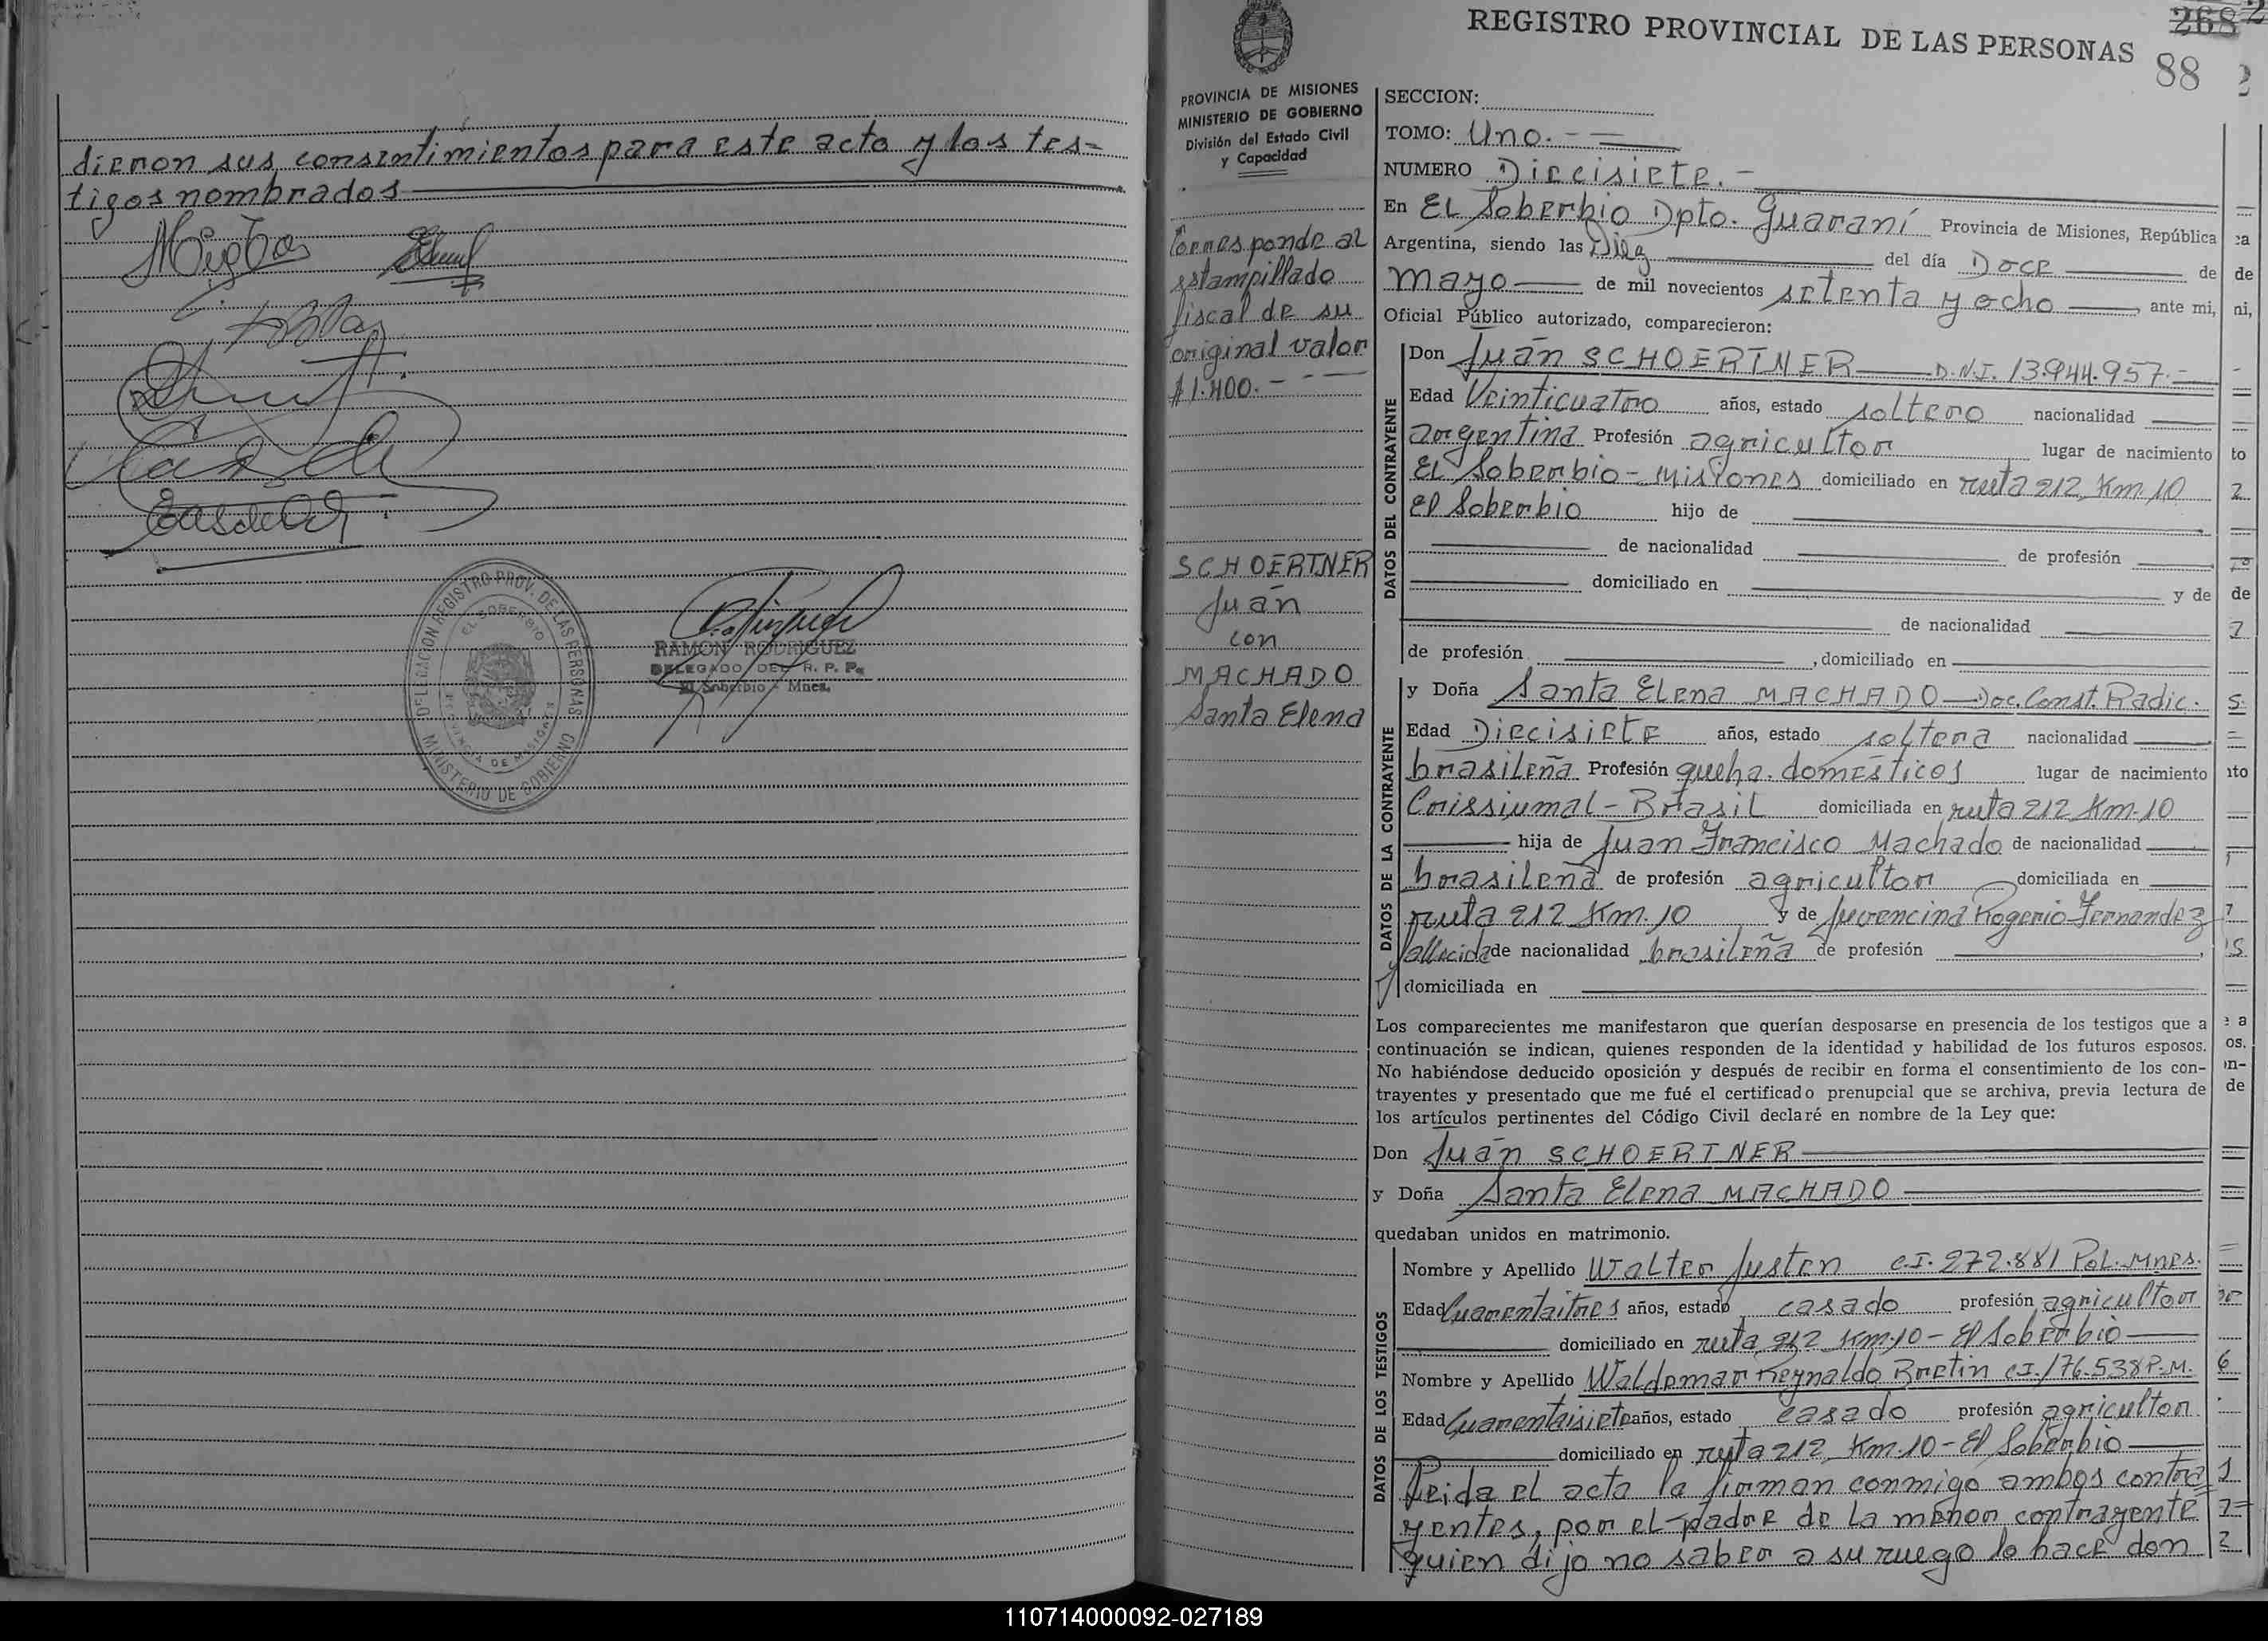 dieron sus consentimientos para este acto y los tes-
tigos nombrados
DELEGACION REGISTRO PROV. DE LAS PERSONAS
EL SOBERBIO
PROVINCIA DE MISIONES
MINISTERIO DE GOBIERNO
RAMON RODRIGUEZ
DELEGADO DEL R. P. P.
El Soberbio - Mnes.
REGISTRO PROVINCIAL DE LAS PERSONAS
268
88
PROVINCIA DE MISIONES
MINISTERIO DE GOBIERNO
División del Estado Civil
y Capacidad
Corresponde al
estampillado
fiscal de su
original valor
$ 1.400.-
SCHOERTNER
Juan
con
MACHADO
Santa Elena
SECCION:
TOMO: Uno.-
NUMERO Diecisiete.-
En El Soberbio Dpto. Guaraní Provincia de Misiones, República
Argentina, siendo las Diez del día Doce de
mayo de mil novecientos setenta y ocho, ante mi,
Oficial Público autorizado, comparecieron:
DATOS DEL CONTRAYENTE
Don Juan SCHOERTNER D.N.I. 13.944.957.-
Edad Veinticuatro años, estado soltero nacionalidad
argentina Profesión agricultor lugar de nacimiento
El Soberbio-Misiones domiciliado en ruta 212 Km.10
El Soberbio hijo de
de nacionalidad de profesión
domiciliado en y de
de nacionalidad
de profesión , domiciliado en
DATOS DE LA CONTRAYENTE
y Doña Santa Elena MACHADO-Doc. Const. Radic.
Edad Diecisiete años, estado soltera nacionalidad
brasileña Profesión queha. domésticos lugar de nacimiento
Crissiumal-Brasil domiciliada en ruta 212 Km.10
hija de Juan Francisco Machado de nacionalidad
brasileña de profesión agricultor domiciliada en
ruta 212 Km.10 y de Rogerio Fernandez
fallecida de nacionalidad brasileña de profesión
domiciliada en
Los comparecientes me manifestaron que querían desposarse en presencia de los testigos que a
continuación se indican, quienes responden de la identidad y habilidad de los futuros esposos.
No habiéndose deducido oposición y después de recibir en forma el consentimiento de los con-
trayentes y presentado que me fué el certificado prenupcial que se archiva, previa lectura de
los artículos pertinentes del Código Civil declaré en nombre de la Ley que:
Don Juan SCHOERTNER
y Doña Santa Elena MACHADO
quedaban unidos en matrimonio.
DATOS DE LOS TESTIGOS
Nombre y Apellido Walter Justen C.I. 272.881 Pol. Mnes.
Edad Cuarentaitres años, estado casado profesión agricultor
domiciliado en ruta 212 Km.10-El Soberbio
Nombre y Apellido Waldemar Reynaldo Bretin CI.176.538 P.M.
Edad Cuarentaisiete años, estado casado profesión agricultor
domiciliado en ruta 212 Km.10-El Soberbio
Leida el acta la firman conmigo ambos contra=
yentes, por el padre de la menor contrayente
quien dijo no saber a su ruego lo hace don
110714000092-027189